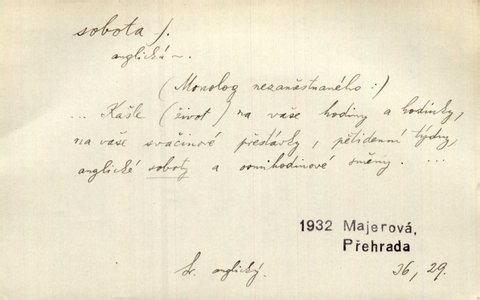 sobota f.
anglická ~.
(Monolog nezaměstnaného:)
... Kašle (život) na vaše hodiny a hodinky,
na vaše svačinové přestávky, pětidenní týdny,
anglické soboty a osmihodinové směny. ...
1932 Majerová,
Přehrada
sr. anglický.
36, 29.